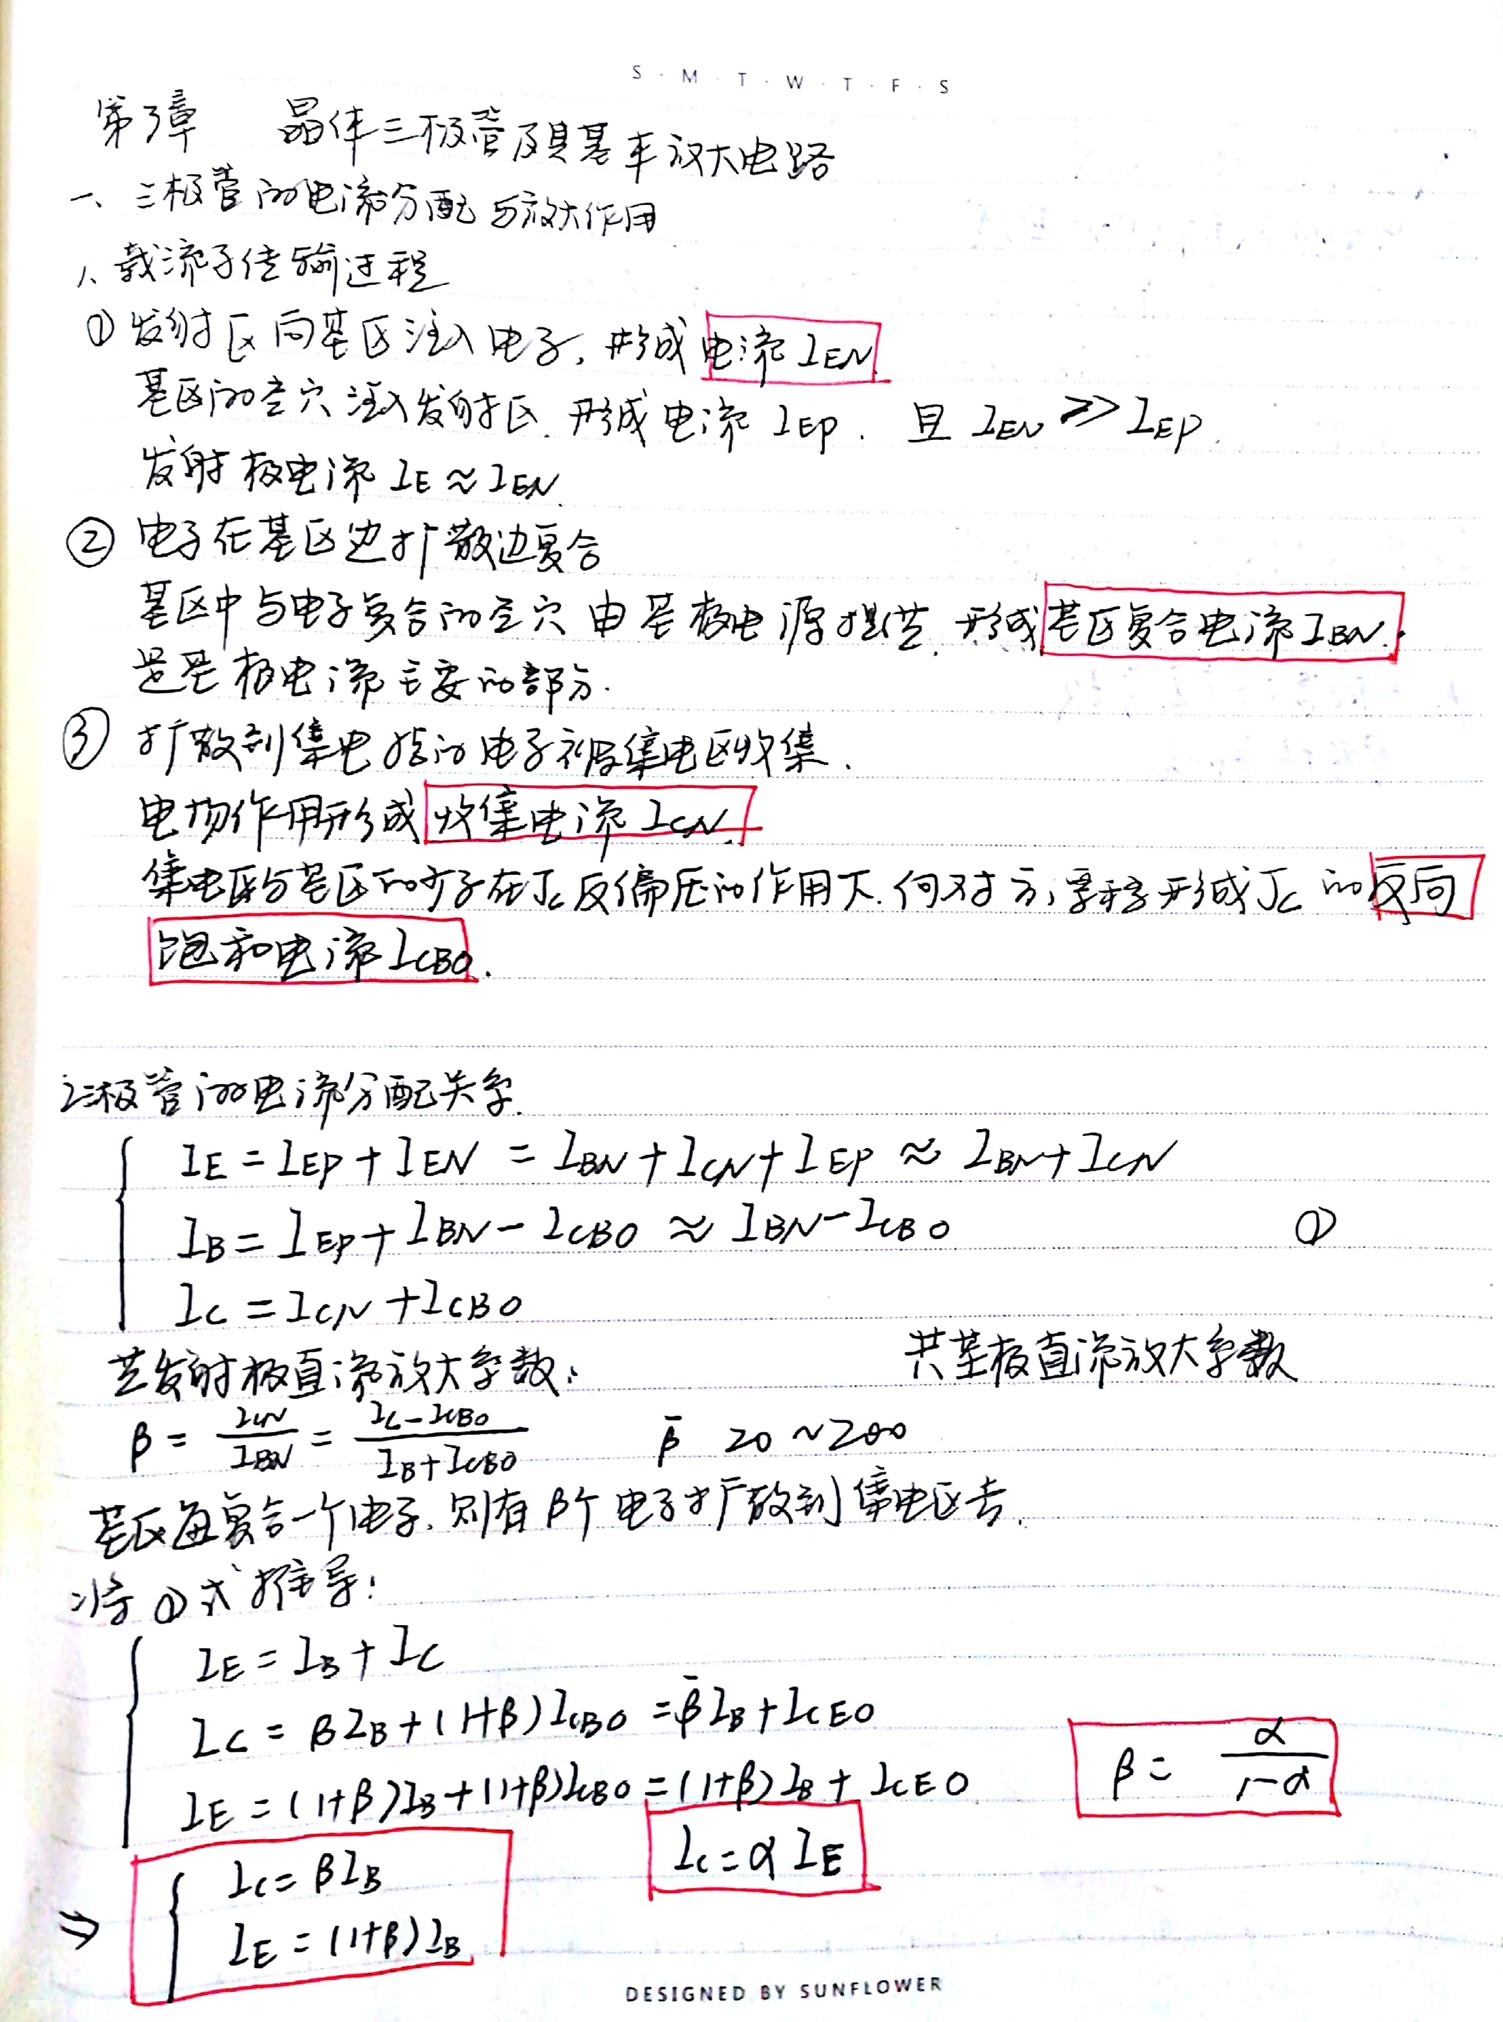 S · M · T · W · T · F · S
第3章 晶体三极管及其基本放大电路
一、三极管的电流分配与放大作用
1、载流子传输过程
① 发射区向基区注入电子，形成电流 IEN
基区的空穴注入发射区，形成电流 IEP．且 IEN >> IEP．
发射极电流 IE ≈ IEN．
② 电子在基区边扩散边复合
基区中与电子复合的空穴由基极电源提供，形成基区复合电流 IBN．
是基极电流主要的部分．
③ 扩散到集电结的电子被集电区收集．
电场作用形成收集电流 ICN．
集电区与基区的少子在 Jc 反偏压的作用下，向对方漂移形成 Jc 的反向
饱和电流 ICBO．
2、三极管的电流分配关系．
IE = IEP + IEN = IBN + ICN + IEP ≈ IBN + ICN
IB = IEP + IBN − ICBO ≈ IBN − ICBO ①
IC = ICN + ICBO
共发射极直流放大系数： 共基极直流放大系数
β = ICN/IBN = (IC − ICBO)/(IB + ICBO) β̄ 20 ~ 200
基区每复合一个电子，则有β个电子扩散到集电区去．
将①式推导：
IE = IB + IC
IC = βIB + (1+β)ICBO = β̄IB + ICEO
IE = (1+β)IB + (1+β)ICBO = (1+β)IB + ICEO
β = α/(1−α)
IC = α IE
⇒ IC = βIB
IE = (1+β)IB
DESIGNED BY SUNFLOWER